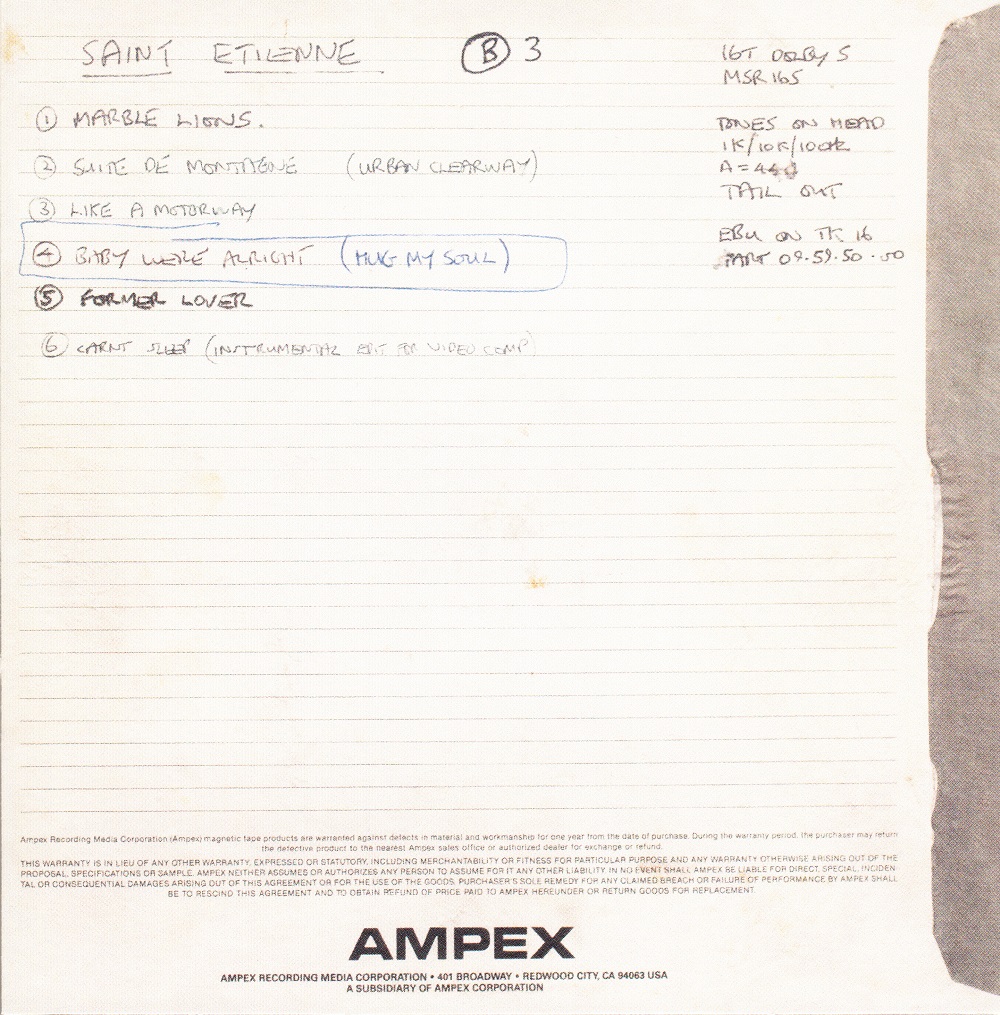 SAINT ETIENNE (B) 3
① MARBLE LIONS.
② SUITE DE MONTAGNE (URBAN CLEARWAY)
③ LIKE A MOTORWAY
④ BABY WERE ALRIGHT (HUG MY SOUL)
⑤ FORMER LOVER
⑥ CARNT SLEEP (INSTRUMENTAL EDIT FOR VIDEO COMP)
16T DOLBY S
MSR 165
TONES ON HEAD
1K/10K/100Hz
A=440
TAIL OUT
EBU ON TK 16
START 09.59.50.00
Ampex Recording Media Corporation (Ampex) magnetic tape products are warranted against defects in material and workmanship for one year from the date of purchase. During the warranty period, the purchaser may return
the defective product to the nearest Ampex sales office or authorized dealer for exchange or refund.
THIS WARRANTY IS IN LIEU OF ANY OTHER WARRANTY, EXPRESSED OR STATUTORY, INCLUDING MERCHANTABILITY OR FITNESS FOR PARTICULAR PURPOSE AND ANY WARRANTY OTHERWISE ARISING OUT OF THE
PROPOSAL, SPECIFICATIONS OR SAMPLE. AMPEX NEITHER ASSUMES OR AUTHORIZES ANY PERSON TO ASSUME FOR IT ANY OTHER LIABILITY. IN NO EVENT SHALL AMPEX BE LIABLE FOR DIRECT, SPECIAL, INCIDEN-
TAL OR CONSEQUENTIAL DAMAGES ARISING OUT OF THIS AGREEMENT OR FOR THE USE OF THE GOODS. PURCHASER'S SOLE REMEDY FOR ANY CLAIMED BREACH OR FAILURE OF PERFORMANCE BY AMPEX SHALL
BE TO RESCIND THIS AGREEMENT AND TO OBTAIN REFUND OF PRICE PAID TO AMPEX HEREUNDER OR RETURN GOODS FOR REPLACEMENT.
AMPEX
AMPEX RECORDING MEDIA CORPORATION • 401 BROADWAY • REDWOOD CITY, CA 94063 USA
A SUBSIDIARY OF AMPEX CORPORATION